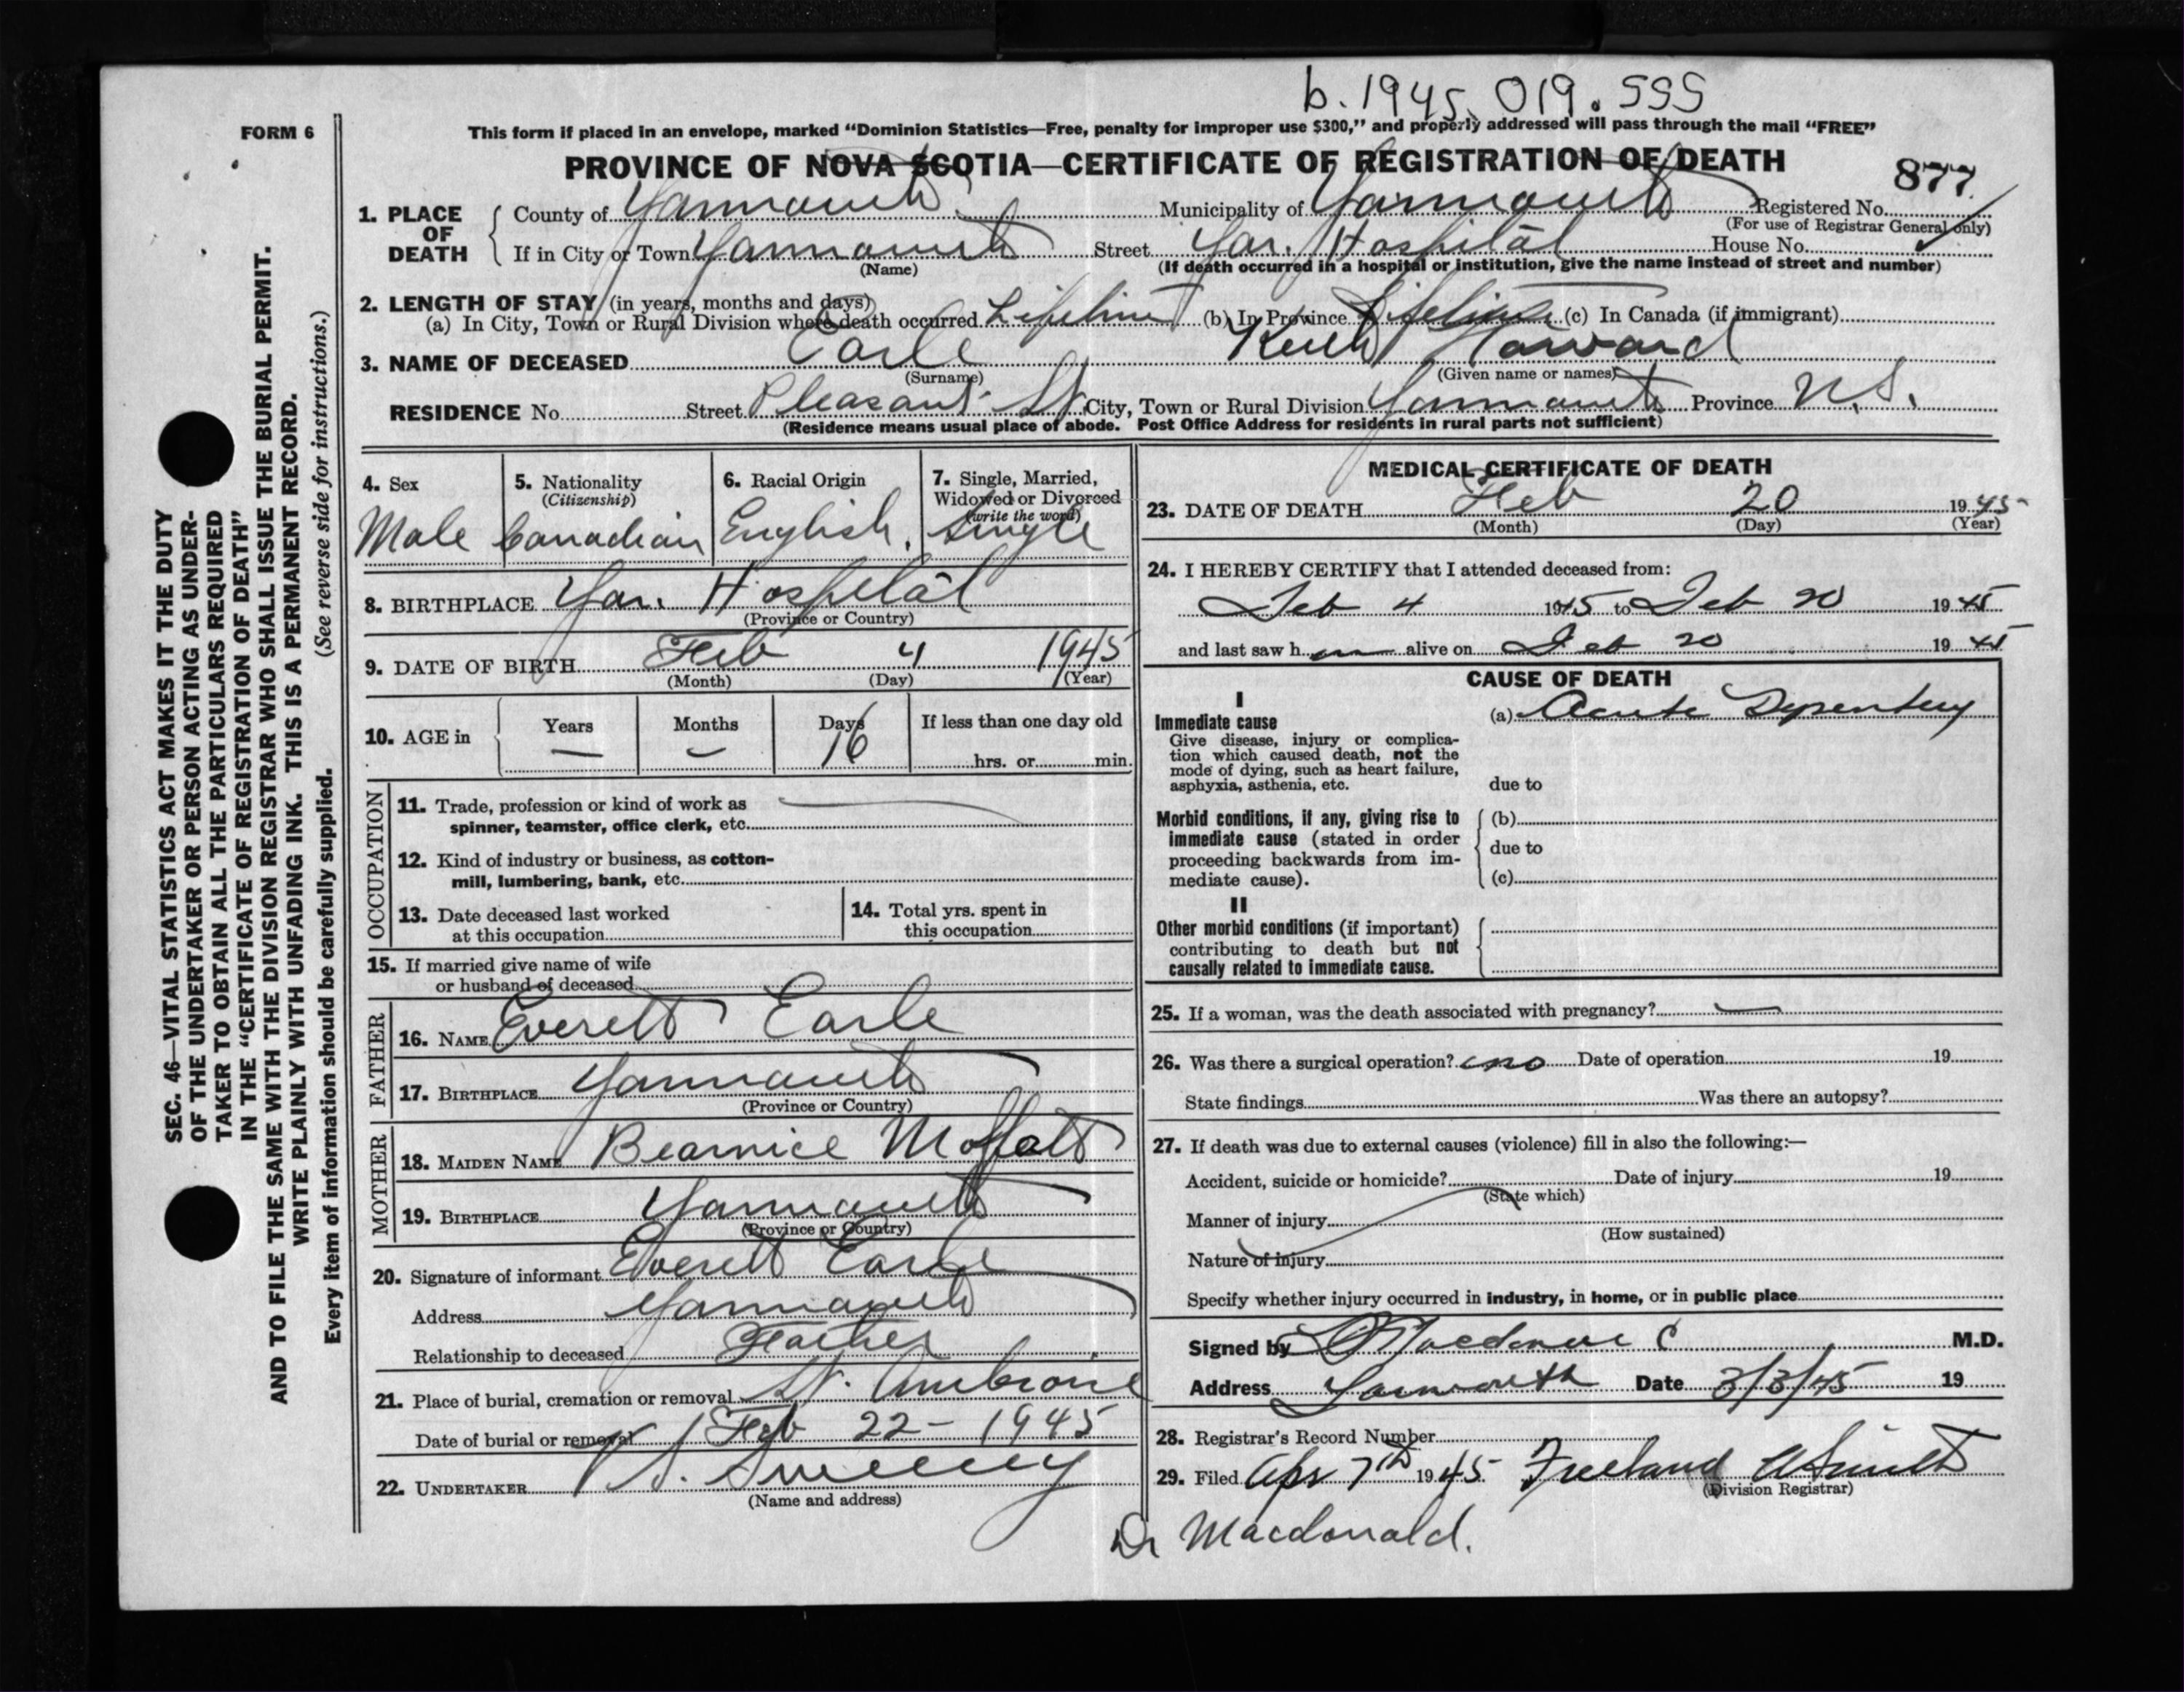 b. 1945. 019. 555
FORM 6
This form if placed in an envelope, marked "Dominion Statistics—Free, penalty for improper use $300," and properly addressed will pass through the mail "FREE"
PROVINCE OF NOVA SCOTIA—CERTIFICATE OF REGISTRATION OF DEATH
877
1. PLACE OF DEATH
County of Yarmouth Municipality of Yarmouth Registered No.
(For use of Registrar General only)
If in City or Town Yarmouth Street Yar. Hospital House No.
(Name) (If death occurred in a hospital or institution, give the name instead of street and number)
2. LENGTH OF STAY (in years, months and days)
(a) In City, Town or Rural Division where death occurred Lifetime (b) In Province Lifetime (c) In Canada (if immigrant)
3. NAME OF DECEASED Earle Keith Howard
(Surname) (Given name or names)
RESIDENCE No. Street Pleasant St City, Town or Rural Division Yarmouth Province N.S.
(Residence means usual place of abode. Post Office Address for residents in rural parts not sufficient)
4. Sex 5. Nationality (Citizenship) 6. Racial Origin 7. Single, Married, Widowed or Divorced (write the word)
Male Canadian English. Single
8. BIRTHPLACE Yar. Hospital
(Province or Country)
9. DATE OF BIRTH Feb 4 1945
(Month) (Day) (Year)
10. AGE in Years Months Days If less than one day old
— — 16 hrs. or min.
OCCUPATION
11. Trade, profession or kind of work as
spinner, teamster, office clerk, etc.
12. Kind of industry or business, as cotton-
mill, lumbering, bank, etc.
13. Date deceased last worked
at this occupation
14. Total yrs. spent in
this occupation
15. If married give name of wife
or husband of deceased
FATHER
16. NAME Everett Earle
17. BIRTHPLACE Yarmouth
(Province or Country)
MOTHER
18. MAIDEN NAME Bearnice Moffatt
19. BIRTHPLACE Yarmouth
(Province or Country)
20. Signature of informant Everett Earle
Address Yarmouth
Relationship to deceased Father
21. Place of burial, cremation or removal St. Ambroise
Date of burial or removal Feb 22 - 1945
22. UNDERTAKER V S. Sweeny
(Name and address)
MEDICAL CERTIFICATE OF DEATH
23. DATE OF DEATH Feb 20 1945
(Month) (Day) (Year)
24. I HEREBY CERTIFY that I attended deceased from:
Feb 4 1945 to Feb 20 1945
and last saw h im alive on Feb 20 1945
CAUSE OF DEATH
I
Immediate cause (a) Acute Dysentery
Give disease, injury or complica-
tion which caused death, not the
mode of dying, such as heart failure,
asphyxia, asthenia, etc. due to
Morbid conditions, if any, giving rise to (b)
immediate cause (stated in order
proceeding backwards from im- due to
mediate cause). (c)
II
Other morbid conditions (if important)
contributing to death but not
causally related to immediate cause.
25. If a woman, was the death associated with pregnancy? —
26. Was there a surgical operation? no Date of operation 19
State findings Was there an autopsy?
27. If death was due to external causes (violence) fill in also the following:—
Accident, suicide or homicide? Date of injury 19
(State which)
Manner of injury
(How sustained)
Nature of injury
Specify whether injury occurred in industry, in home, or in public place
Signed by M.D.
Address Yarmouth Date 3/3/45 19
28. Registrar's Record Number
29. Filed Apr 7th 1945 Freeland
(Division Registrar)
Dr Macdonald.
SEC. 46—VITAL STATISTICS ACT MAKES IT THE DUTY
OF THE UNDERTAKER OR PERSON ACTING AS UNDER-
TAKER TO OBTAIN ALL THE PARTICULARS REQUIRED
IN THE "CERTIFICATE OF REGISTRATION OF DEATH"
AND TO FILE THE SAME WITH THE DIVISION REGISTRAR WHO SHALL ISSUE THE BURIAL PERMIT.
WRITE PLAINLY WITH UNFADING INK. THIS IS A PERMANENT RECORD.
Every item of information should be carefully supplied. (See reverse side for instructions.)